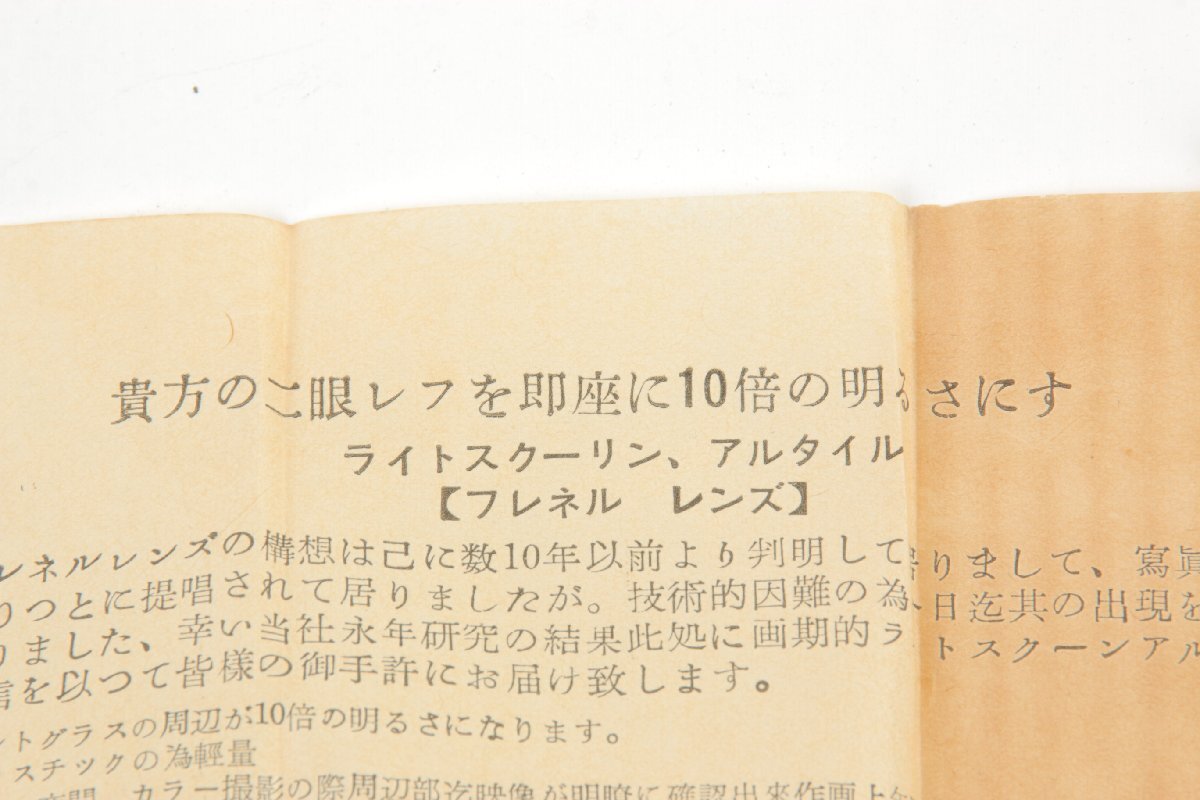 貴方の二眼レフを即座に10倍の明るさにす
ライトスクーリン、アルタイル
【フレネル レンズ】
レネルレンズの構想は己に数10年以前より判明して りまして、寫眞
りつとに提唱されて居りましたが。技術的因難の為、 日迄其の出現を
りました、幸い当社永年研究の結果此処に画期的ラ トスクーンアル
信を以つて皆様の御手許にお届け致します。
ントグラスの周辺が10倍の明るさになります。
スチックの為輕量
カラー撮影の際周辺部迄映像が明瞭に確認出来作画上